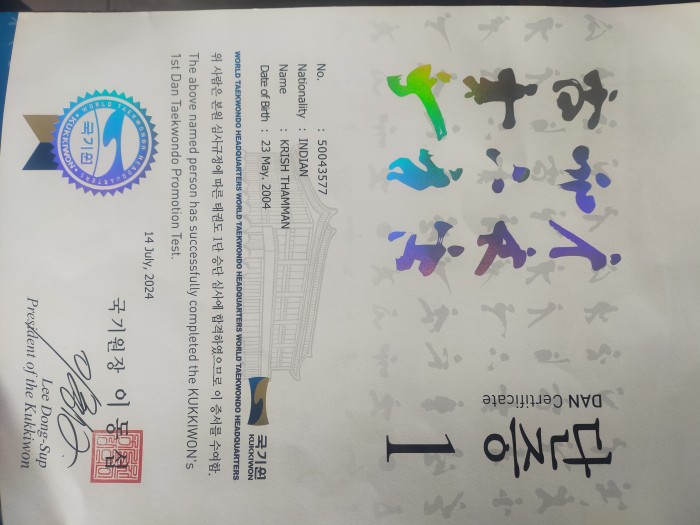 단증
DAN Certificate
1
No. : 50043577
Nationality : INDIAN
Name : KRISH THAMMAN
Date of Birth : 23 May, 2004
국기원
KUKKIWON
WORLD TAEKWONDO HEADQUARTERS WORLD TAEKWONDO HEADQUARTERS WORLD TAEKWONDO HEADQUARTERS WORLD TAEKWONDO HEADQUARTERS
위 사람은 본원 심사규정에 따른 태권도 1단 승단 심사에 합격하였으므로 이 증서를 수여함.
The above named person has successfully completed the KUKKIWON's
1st Dan Taekwondo Promotion Test.
14 July, 2024
국기원장 이동섭
Lee Dong-Sup
President of the Kukkiwon
WORLD TAEKWONDO HEADQUARTERS
국기원
KUKKIWON